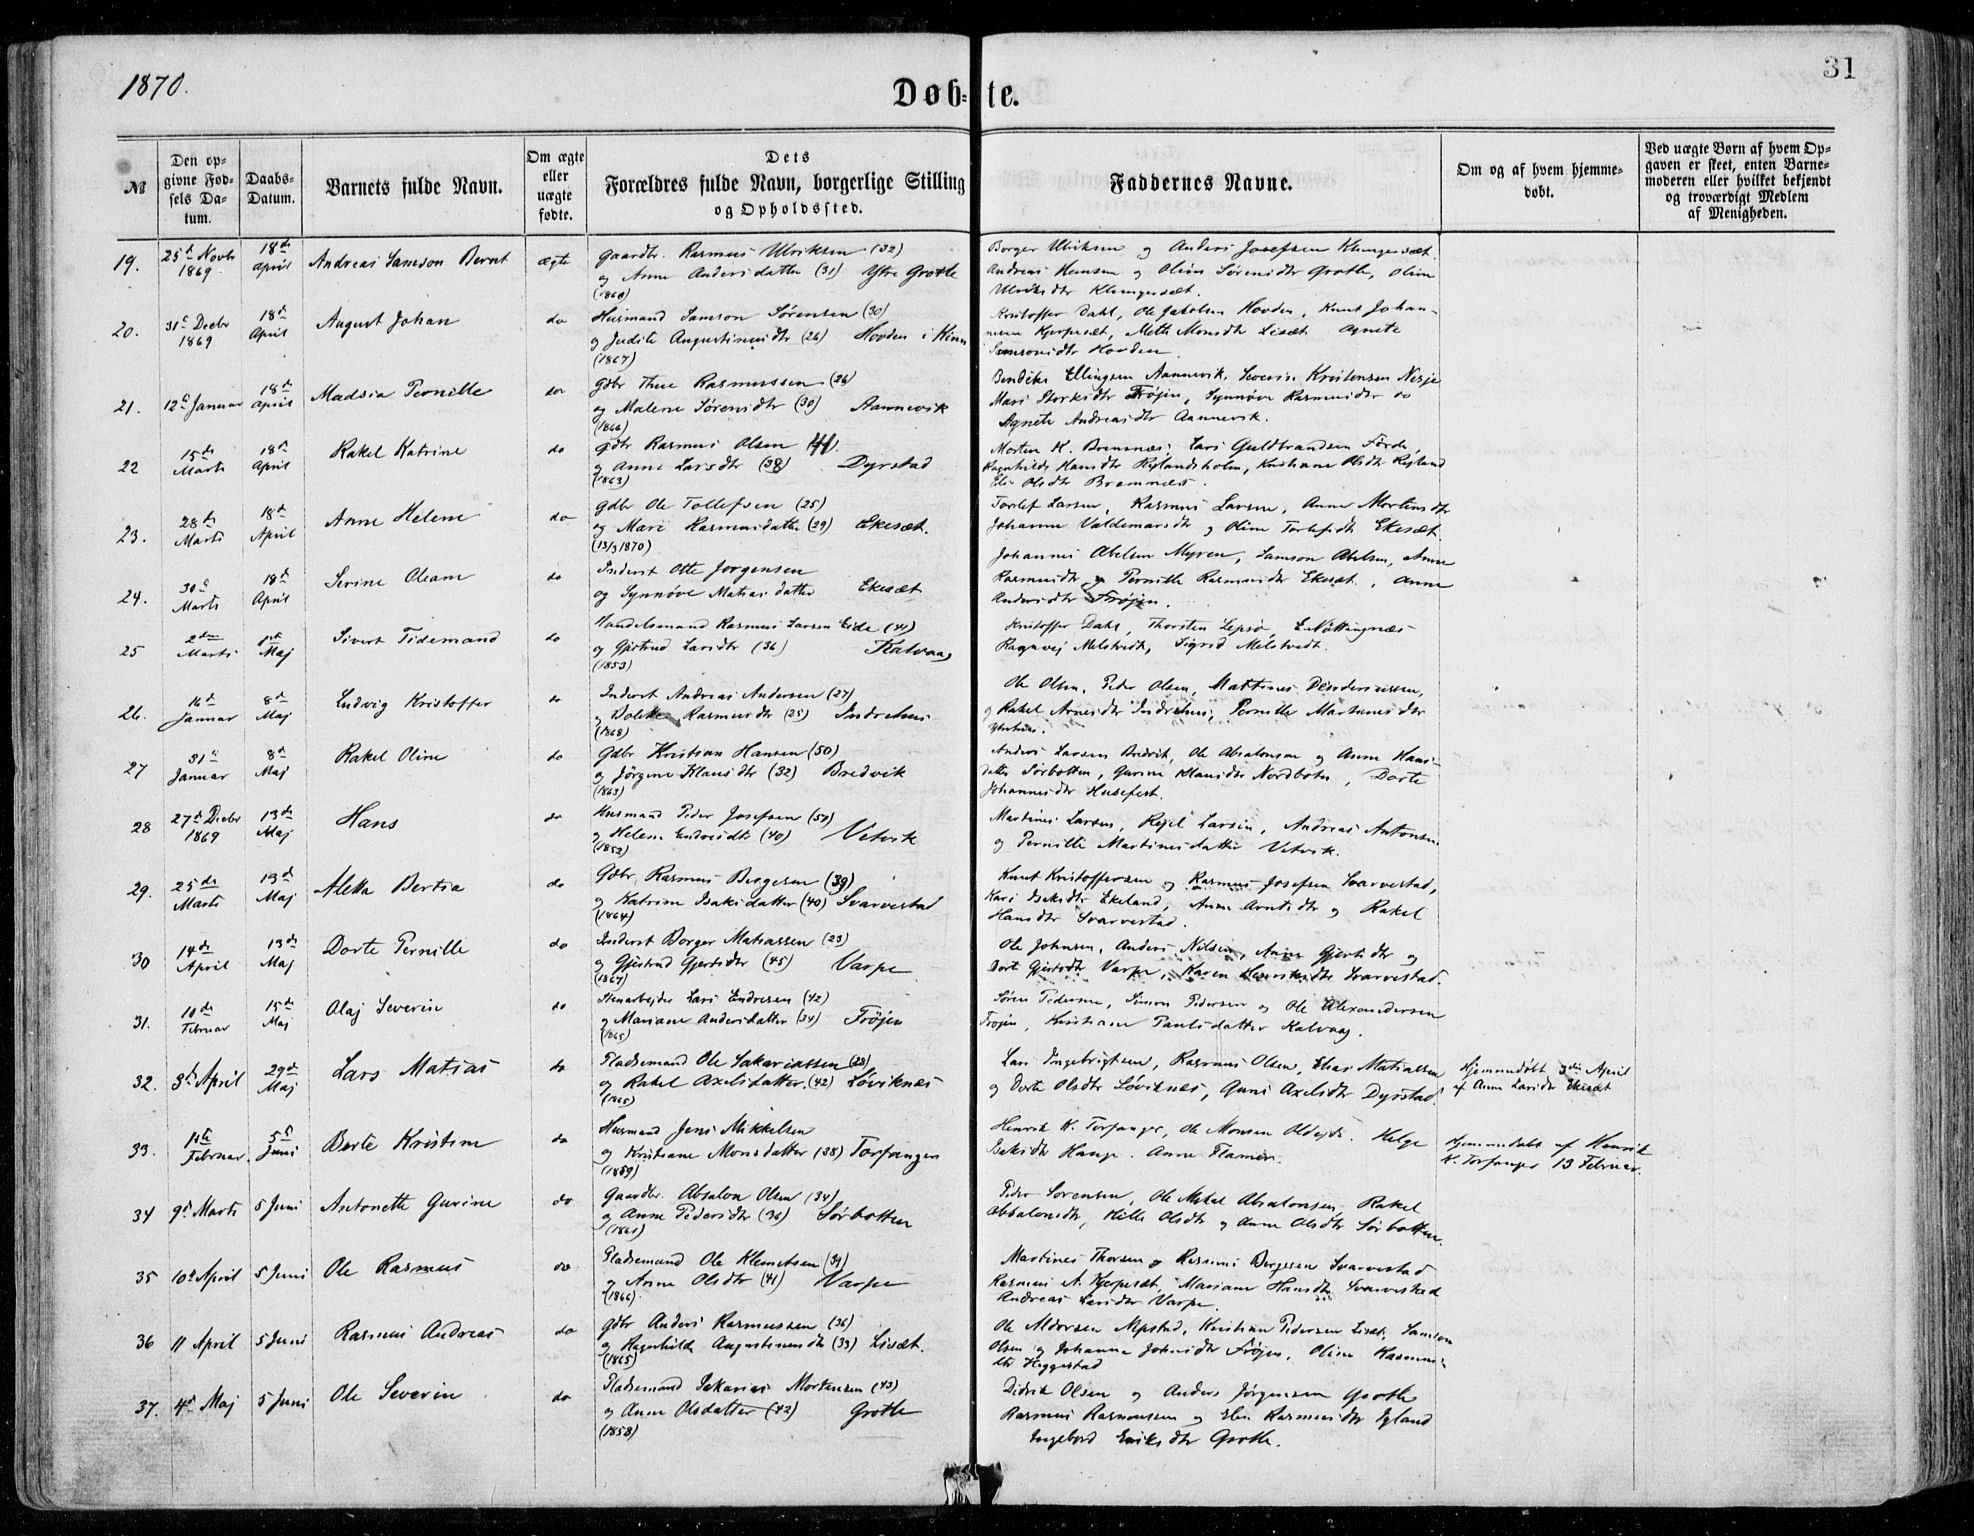 1870.
Døb-te.
31
№
Den op-
givne Fød-
sels Da-
tum.
Daabs-
Datum.
Barnets fulde Navn.
Om ægte
eller
uægte
fødte.
Dets
Forældres fulde Navn, borgerlige Stilling
og Opholdssted.
Faddernes Navne.
Om og af hvem hjemme-
døbt.
Ved uægte Børn af hvem Op-
gaven er skeet, enten Barne-
moderen eller hvilket bekjendt
og troværdigt Medlem
af Menigheden.
19. 25d Novbr 1869 18de April Andreas Samson Bernt ægte
Gaardbr. Rasmus Ulriksen (32)
og Anne Andersdatter (31) Ytre Grotle
(1860)
Borger Ulriksen og Anders Josefsen Klungersæt.
Andreas Hansen og Oline Sørensdtr Grotle, Oline
Ulriksdtr Klungersæt.
20. 31te Decbr 1869 18de April August Johan do
Husmand Samson Sørensen (30)
og Judite Augustinusdtr (26) Hovden i Kinn
(1867)
Kristoffer Dahl, Ole Jakobsen Hovden, Knut Johan-
nesen Kjerpesæt, Mette Monsdtr Lisæt Agnete
Samsonsdtr Hovden.
21. 12te Januar 18de April Madsia Pernille do
Gdbr Thue Rasmussen (26)
og Malene Sørensdtr (30) Aannevik
(1866)
Bendiks Ellingsen Aannevik, Severin Kristensen Nesje
Mari Storksdtr Frøjen, Synnøve Rasmusdtr do
Agnete Andreasdtr Aannevik.
22 15de Marts 18de April Rakel Katrine do
Gdbr Rasmus Olsen 44.
og Anne Larsdtr (38) Dyrstad
(1863)
Morten H. Bremnæs, Lars Guldbrandsen Førde,
Ragnhilde Hansdtr Rylandsholm, Kristiane Olsdtr Ryland
Eli Olsdtr Bremnæs.
23. 28de Marts 18de April Anne Helene do
Gdbr Ole Tollefsen (25)
og Mari Rasmusdatter (29) Ekesæt.
(13/3 1870)
Torlef Larsen, Rasmus Larsen, Anne Mortensdtr
Johanne Valdemarsdtr og Oline Torlefsdtr Ekesæt.
24. 30te Marts 18de April Serine Oleane do
Inderst Otte Jørgensen
og Synnøve Matiasdatter Ekesæt
Johannes Abelsen Myren, Samson Abelsen, Anne
Rasmusdtr og Pernille Rasmusdtr Ekesæt, Anne
Andersdtr Frøjen.
25 2den Marts 1ste Maj Sivert Tidemand do
Handelsmand Rasmus Larsen Eide (41)
og Gjertrud Larsdtr (36) Kalvaag
(1853)
Kristoffer Dahl, Thorsten Lepsø, E. Nøttingnæs
Ragnvej Melstvedt, Sigrid Melstvedt.
26. 16de Januar 8de Maj Ludvig Kristoffer do
Inderst Andreas Andersen (27)
og Dolette Rasmusdtr (25) Indrehus
(1868)
Ole Olsen, Peder Olsen, Martinus Desideriussen,
og Rakel Arnesdtr Indrehus, Pernille Martinusdtr
27 31te Januar 8de Maj Rakel Oline do
Gdbr Kristian Hansen (50)
og Jørgine Klausdtr (32) Bredvik
(1863)
Anders Larsen Bredvik, Ole Absalonsen og Anne Hans-
datter Sørbotten, Gurine Klausdtr Nordbotn, Dorte
Johannesdtr Husefest.
28 27de Decbr 1869 13de Maj Hans do
Husmand Peder Josefsen (50)
og Helene Endresdtr (40) Vetvik
(1852)
Martinus Larsen, Rejel Larsen, Andreas Antonsen
og Pernille Martinusdatter Vetvik.
29. 25de Marts 13de Maj Aletta Bertia do
Gdbr. Rasmus Børgesen (39)
og Katrine Isaksdatter (40) Svarvestad
(1864)
Knut Kristoffersen og Rasmus Josefsen Svarvestad,
Kari Isaksdtr Ekeland, Anne Arntsdtr og Rakel
Hansdtr Svarvestad.
30 14de April 13de Maj Dorte Pernille do
Inderst Borger Matiassen (23)
og Gjertrud Gjertsdtr (45) Varpe
(1867)
Ole Johnsen, Anders Nilsen, Anne Gjertsdtr og
Dort Gjertsdtr Varpe, Karen Henriksdtr Svarvestad.
31. 10de Februar 15de Maj Olaj Severin do
Stenarbejder Lars Endresen (42)
og Mariane Andersdatter (34) Frøjen
(1865)
Søren Pedersen, Simon Pedersen og Ole Alexandersen
Frøjen, Kristiane Paulsdatter Kalvaag.
32. 3de April 29de Maj Lars Matias do
Pladsemand Ole Sakariassen (28)
og Rakel Axelsdatter. (42) Løviknæs
(1865)
Lars Ingebrigtsen, Rasmus Olsen, Elias Matiassen
og Dorte Olsdtr Løviknæs, Guni Axelsdtr Dyrstad.
Hjemmedøbt 3die April
af Anne Larsdtr Ekesæt
33. 1ste Februar. 5te Juni Berte Kristine do
Husmand Jens Mikkelsen
og Kristiane Monsdatter (38) Torfanger
(1859)
Henrik K. Torfanger, Ole Monsen Oldejde. Helge
Isaksdtr Hauge. Anne Flamer.
Hjemmedøbt af Henrik
K. Torfanger 13 Februar.
34 9de Marts 5 Juni Antonette Gurine do
Gaardbr. Absalon Olsen (34)
og Anne Pedersdtr (36) Sørbotten
(1861)
Peder Sørensen, Ole Mikal Absalonsen, Rakel
Absalonsdtr, Kille Olsdtr og Anne Olsdtr Sørbotten.
35 10de April 5 Juni Ole Rasmus do
Pladsemand Ole Klemetsen (39)
og Anne Olsdtr (41) Varpe
(1866)
Martines Thorsen og Rasmus Børgesen Svarvestad
Rasmus A. Kjerpesæt, Mariane Hansdtr Svarvestad
Andreas Larsdtr Varpe.
36 11 April 5 Juni Rasmus Andreas do
Gdbr Anders Rasmussen (36)
og Ragnhilde Augustinusdtr (33) Lisæt.
(1865)
Ole Aldorsen Myrstad, Kristian Pedersen Lisæt, Samson
Olsen og Johanna Johnsdtr Frøjen, Oline Rasmus-
dtr Heggestad
37. 4de Maj 5 Juni Ole Severin do
Pladsemand Sakarias Mortensen (43)
og Anne Olsdatter (42) Grotle
(1858)
Didrik Olsen og Anders Jørgensen Grotle
Rasmus Rasmussen og Elen Rasmusdtr Igland
Ingebord Eriksdtr Grotle.